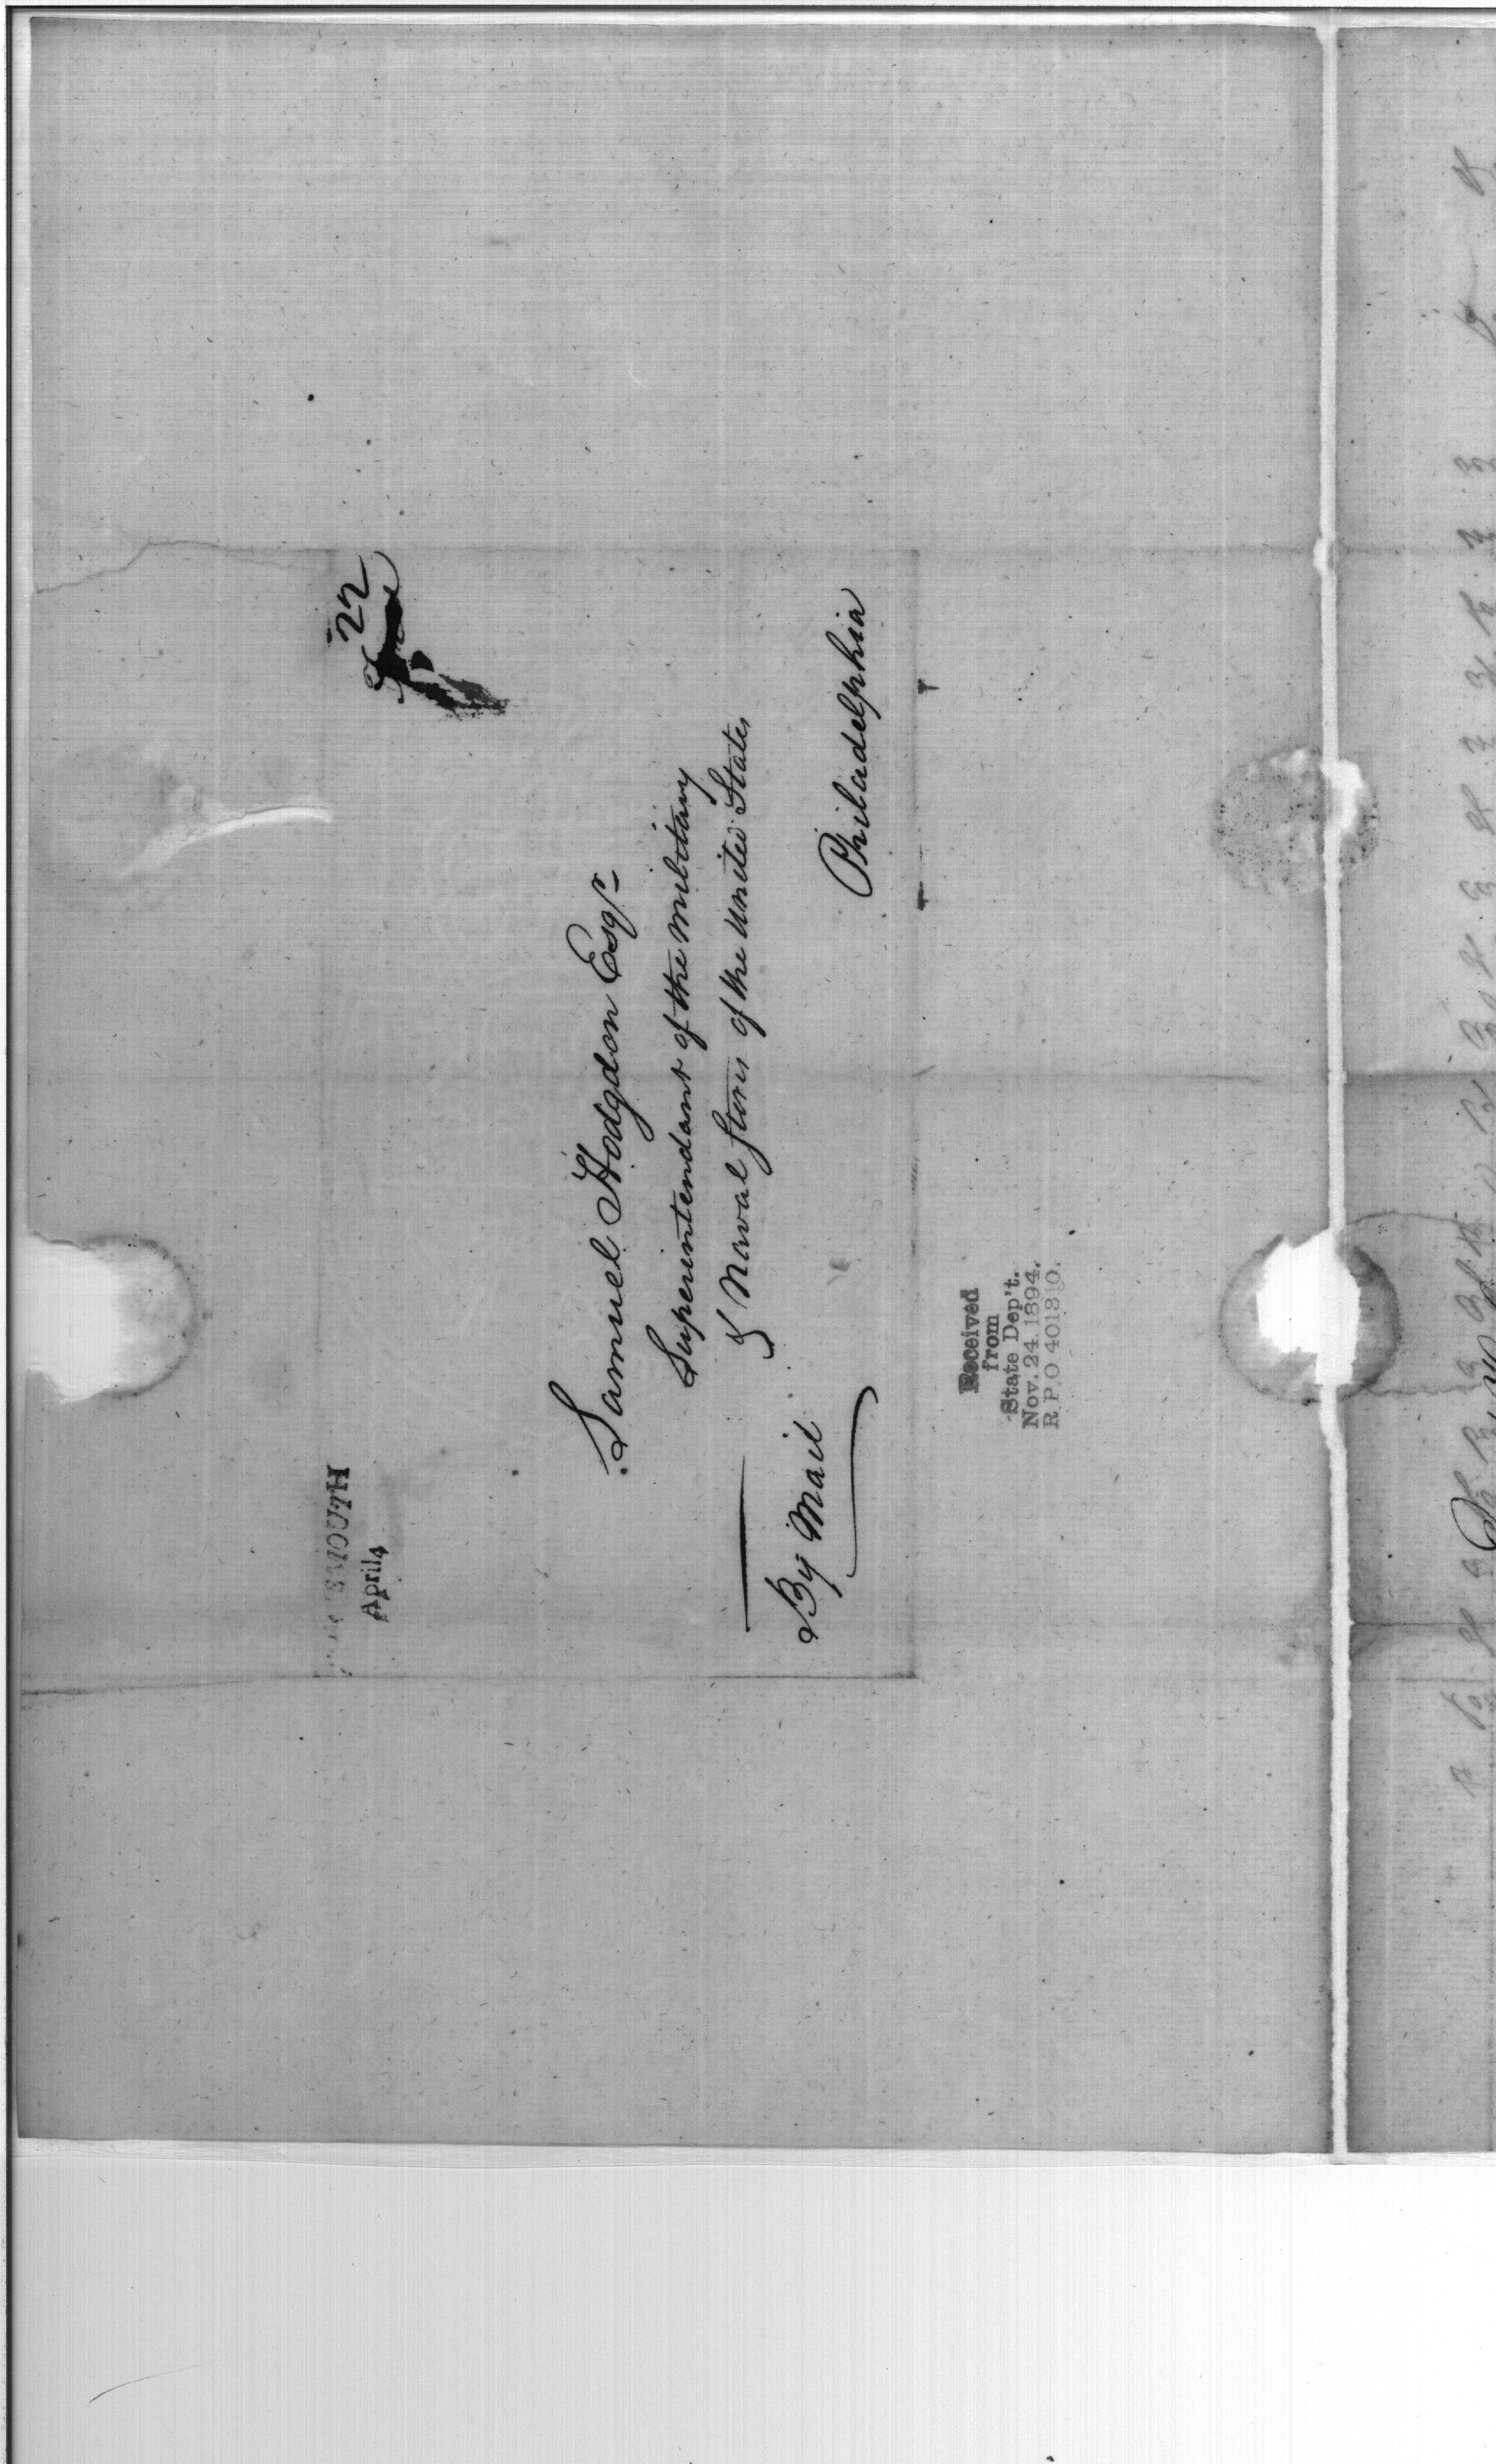 SMOUTH
April 4
22
Samuel Hodgdon Esqr
Superintendant of the military
& Naval stores of the United States
Philadelphia
By Mail
Received
from
State Dep't.
Nov. 24 1894.
R. P. O 401310.